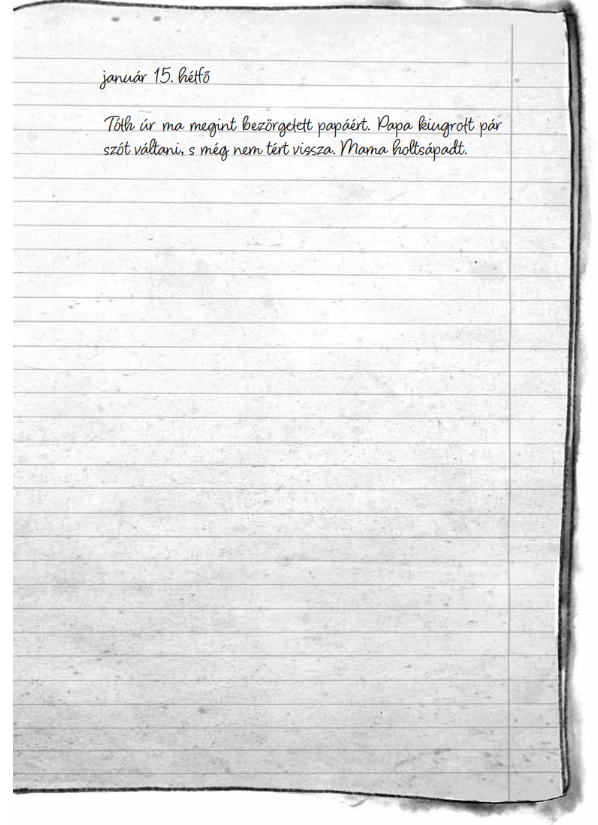 január 15. hétfő
Tóth úr ma megint bezörgetett papáért. Papa kiugrott pár
szót váltani, s még nem tért vissza. Mama holtsápadt.